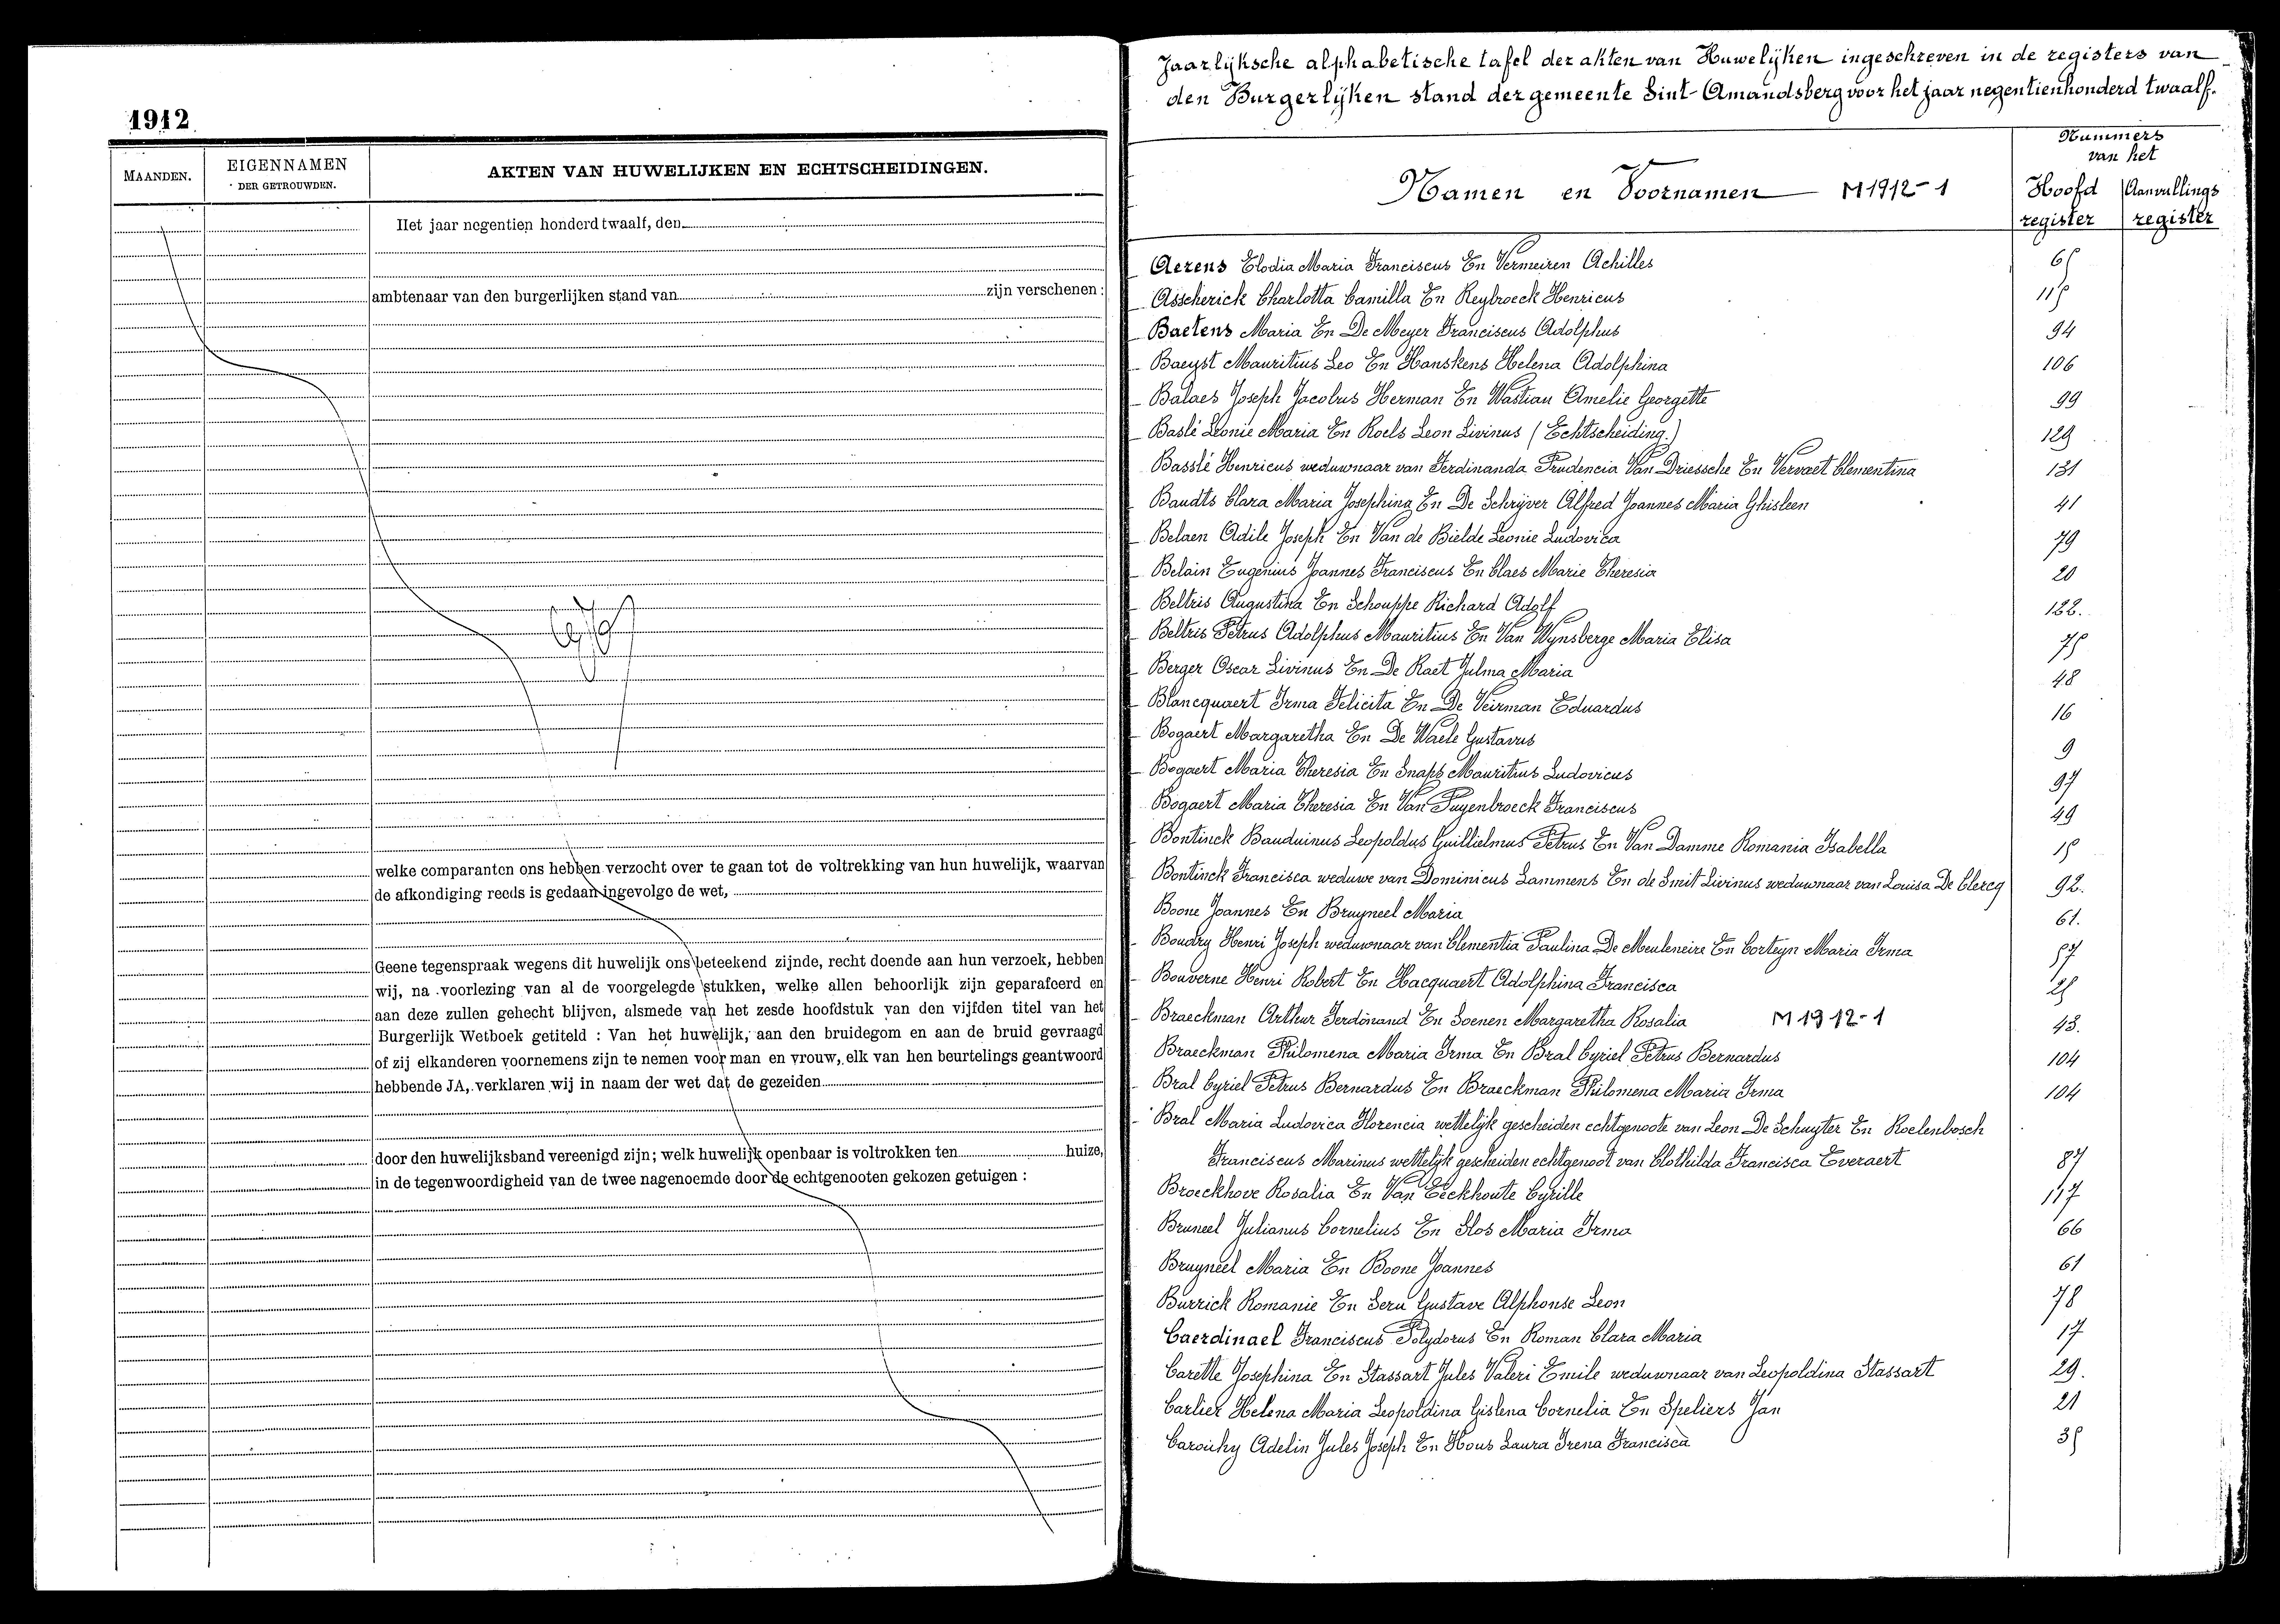 1912
MAANDEN.
EIGENNAMEN
DER GETROUWDEN.
AKTEN VAN HUWELIJKEN EN ECHTSCHEIDINGEN.
Het jaar negentien honderd twaalf, den
ambtenaar van den burgerlijken stand van zijn verschenen :
welke comparanten ons hebben verzocht over te gaan tot de voltrekking van hun huwelijk, waarvan
de afkondiging reeds is gedaan ingevolge de wet,
Geene tegenspraak wegens dit huwelijk ons beteekend zijnde, recht doende aan hun verzoek, hebben
wij, na voorlezing van al de voorgelegde stukken, welke allen behoorlijk zijn geparafeerd en
aan deze zullen gehecht blijven, alsmede van het zesde hoofdstuk van den vijfden titel van het
Burgerlijk Wetboek getiteld : Van het huwelijk, aan den bruidegom en aan de bruid gevraagd
of zij elkanderen voornemens zijn te nemen voor man en vrouw, elk van hen beurtelings geantwoord
hebbende JA, verklaren wij in naam der wet dat de gezeiden
door den huwelijksband vereenigd zijn; welk huwelijk openbaar is voltrokken ten huize,
in de tegenwoordigheid van de twee nagenoemde door de echtgenooten gekozen getuigen :
Jaarlijksche alphabetische tafel der akten van Huwelijken ingeschreven in de registers van
den Burgerlijken stand der gemeente Sint-Amandsberg voor het jaar negentienhonderd twaalf.
Namen en Voornamen M1912-1
Nummers
van het
Hoofd register
Aanvullings register
Aerens Elodia Maria Franciscus En Vermeiren Achilles 65
Asscherick Charlotta Camilla En Reybroeck Henricus 115
Baetens Maria En De Meyer Franciscus Adolphus 94
Baeyst Mauritius Leo En Hanskens Helena Adolphina 106
Balaes Joseph Jacobus Herman En Wastiau Amelie Georgette 99
Baslé Leonie Maria En Roels Leon Livinus (Echtscheiding.) 129
Basslé Henricus weduwnaar van Ferdinanda Prudencia Van Driessche En Vervaet Clementina 131
Baudts Clara Maria Josephina En De Schrijver Alfred Joannes Maria Ghisleen 41
Belaen Adile Joseph En Van de Bielde Leonie Ludovica 79
Belain Eugenius Joannes Franciscus En Claes Marie Theresia 20
Beltris Augustina En Schouppe Richard Adolf 122.
Beltris Petrus Adolphus Mauritius En Van Wynsberge Maria Elisa 75
Berger Oscar Livinus En De Raet Julma Maria 48
Blancquaert Irma Felicita En De Veirman Eduardus 16
Bogaert Margaretha En De Waele Gustavus 9
Bogaert Maria Theresia En Snaps Mauritius Ludovicus 97
Bogaert Maria Theresia En Van Puyenbroeck Franciscus 49
Bontinck Bauduinus Leopoldus Guillielmus Petrus En Van Damme Romania Isabella 15
Bontinck Francisca weduwe van Dominicus Lammens En de Smit Livinus weduwnaar van Louisa De Clercq 92.
Boone Joannes En Bruyneel Maria 61.
Boudry Henri Joseph weduwnaar van Clementia Paulina De Meuleneire En Corteyn Maria Irma 57
Bouverne Henri Robert En Hacquaert Adolphina Francisca 25
Braeckman Arthur Ferdinand En Soenen Margaretha Rosalia M1912-1 43.
Braeckman Philomena Maria Irma En Bral Cyriel Petrus Bernardus 104
Bral Cyriel Petrus Bernardus En Braeckman Philomena Maria Irma 104
Bral Maria Ludovica Florencia wettelijk gescheiden echtgenoote van Leon De Schuyter En Roelenbosch
Franciscus Marinus wettelijk gescheiden echtgenoot van Clothilda Francisca Everaert 87
Broeckhove Rosalia En Van Eeckhoute Cyrille 117
Bruneel Julianus Cornelius En Slos Maria Irma 66
Bruyneel Maria En Boone Joannes 61
Burrick Romanie En Seru Gustave Alphonse Leon 78
Caerdinael Franciscus Polydorus En Roman Clara Maria 17
Carette Josephina En Stassart Jules Valeri Emile weduwnaar van Leopoldina Stassart 29.
Carlier Helena Maria Leopoldina Gislena Cornelia En Speliers Jan 21
Carouhy Adelin Jules Joseph En Hous Laura Irena Francisca 35